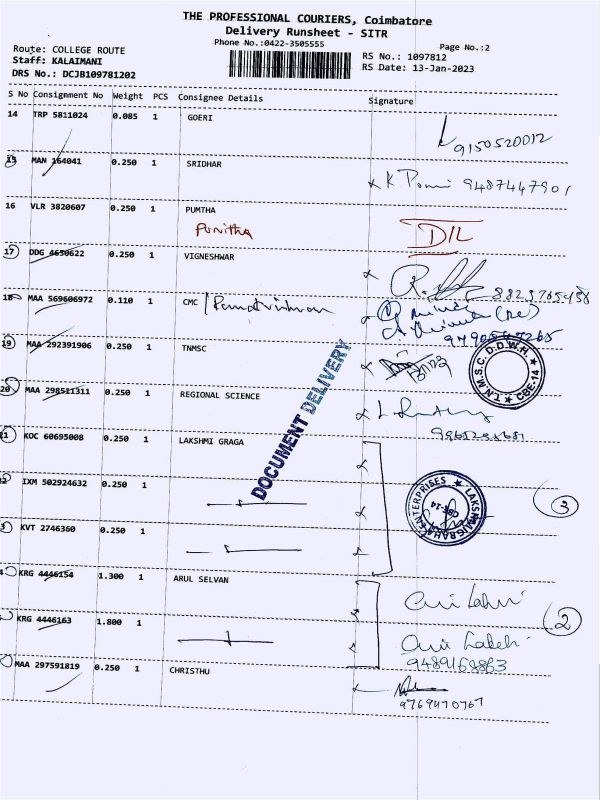 THE PROFESSIONAL COURIERS, Coimbatore
Delivery Runsheet - SITR
Phone No.:0422-3505555
Page No.:2
Route: COLLEGE ROUTE
Staff: KALAIMANI
DRS No.: DCJB109781202
RS No.: 1097812
RS Date: 13-Jan-2023
S No Consignment No Weight PCS Consignee Details Signature
14 TRP 5811024 0.085 1 GOERI
9150520012
15 MAN 164041 0.250 1 SRIDHAR
9487447901
16 VLR 3820607 0.250 1 PUMTHA
Punitha
D/L
17 DDG 4650622 0.250 1 VIGNESHWAR
18 MAA 569606972 0.110 1 CMC
19 MAA 292391906 0.250 1 TNMSC
T.N.M.S.C. D.D.W.H. CBE-14
20 MAA 298511311 0.250 1 REGIONAL SCIENCE
DOCUMENT DELIVERY
21 KOC 60695008 0.250 1 LAKSHMI GRAGA
IXM 502924632 0.250 1
ENTERPRISES CBE-14
3
KVT 2746360 0.250 1
KRG 4446154 1.300 1 ARUL SELVAN
2
KRG 4446163 1.800 1
MAA 297591819 0.250 1 CHRISTHU